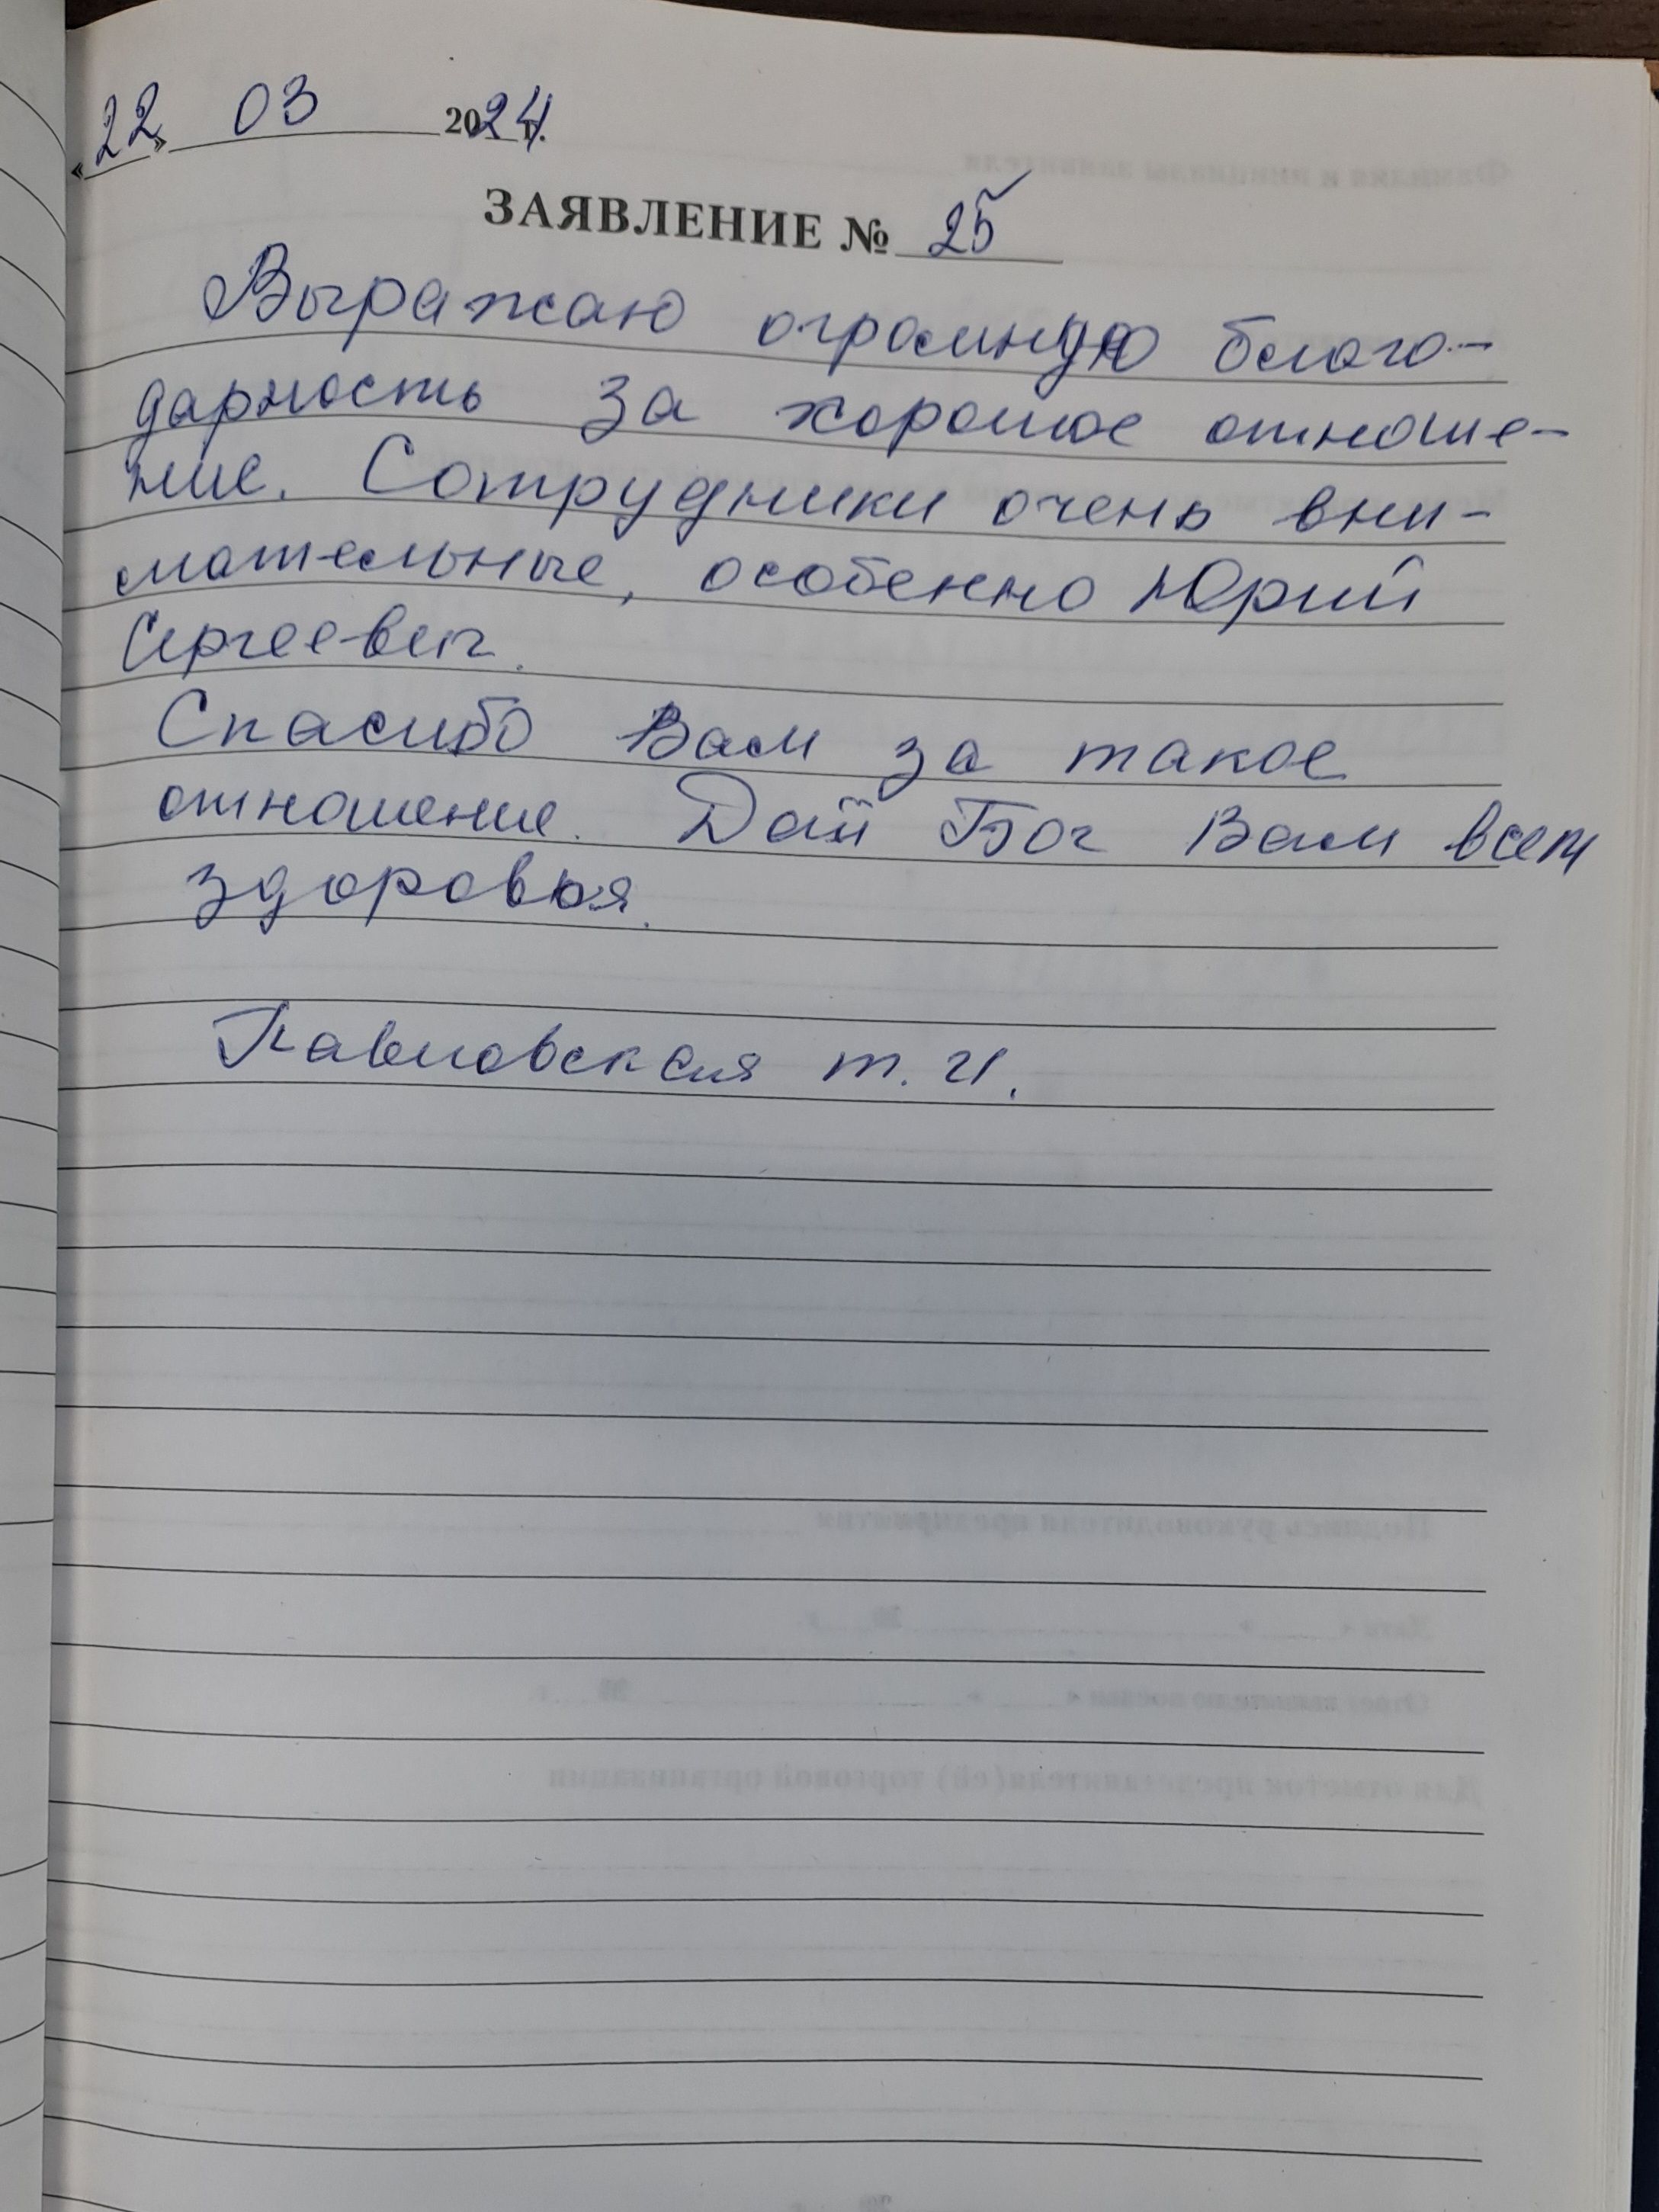 «22» 03 2024 г.
ЗАЯВЛЕНИЕ № 25
Выражаю огромную благо-
дарность за хорошое отноше-
ние. Сотрудники очень вни-
мательные, особенно Юрий
Сергеевич.
Спасибо Вам за такое
отношение. Дай Бог Вам всем
здоровья.
Павловская т. И.